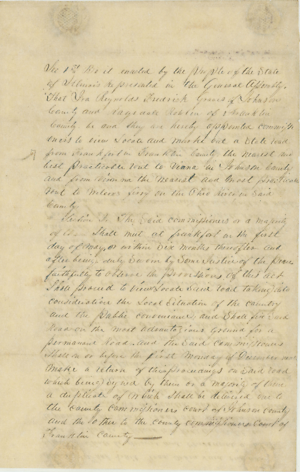 Sec 1st Be it enacted by the People of the State
of Illinois represented in the General Assembly
That Ira Reynolds Fredrick Graves of Johnson
County and
County be and they are hereby appointed commiss
ioners to view locate and marke out a State road
from Frankfort in Franklin County the nearest and
best practicable rout to Vienna in Johnson County
and from Vienna the nearest and most practicable
rout to Wilcox ferry on the Ohio river in said
County
Section 2 The said commissioners or a majority
of them Shall meet at frankfort on the first
day of may or within Six months thereafter and
after being duly Sworn by Some Justice of the peace
faithfully to observe the provisions of this act
Shall proceed to view locate Said road taking into
consideration the Local Situation of the country
and the public convenience and Shall lay Said
road on the most advantagious Ground for a
permanent Road and the Said commissioners
Shall on or before the first Monday of December next
make a return of their proceedings on Said road
which being signed by them or a majority of them
a duplicate of which Shall be delivered one to
the County commissioners court of Johnson county
and the other to the County commissioners Court of
Franklin County